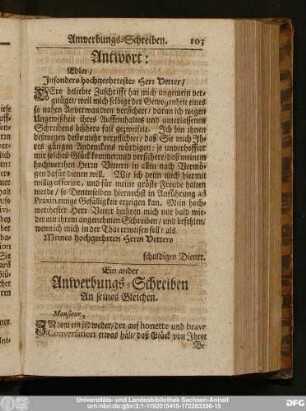 Anwerbungs-Schreiben. 103
Antwort:
Edler/
Insonders hochgeehrtester Herr Vetter/
Dero beliebte Zuschrifft hat mich ungemein ver-
gnüget/ weil mich selbige der Gewogenheit eines
so nahen Anverwandten versichert/ daran ich wegen
Ungewißheit ihres Auffenthaltes und unterlassenen
Schreibens bißhero fast gezweifelt. Ich bin ihnen
deßwegen desto mehr verpflichtet/ daß Sie mich Ih-
res gütigen Andenckens würdigen: je unverhoffter
mir solches Glück kommen und versichere/ daß meinem
hochwerthen Herrn Vettern in allen nach Vermö-
gen dafür dienen will. Wie ich denn mich hiermit
willig offerire, und für meine gröste Freude halten
werde/ so Demselben hiernechst in Anführung ad
Praxin einige Gefälligkeit erzeigen kan. Mein hoch-
werthester Herr Vetter beehren mich nur bald wie-
der mit ihrem angenehmen Schreiben/ und befehlen/
wenn ich mich in der That erweisen soll/ als
Meines hochgeehrten Herrn Vetters
schuldigen Diener.
Ein ander
Anwerbungs-Schreiben
An seines Gleichen.
Monsieur,
Indem ein jedweder/ der auf honette und brave
Conversation etwas hält/ daß Glück von Ihrer
Be-
Universitäts- und Landesbibliothek Sachsen-Anhalt
urn:nbn:de:gbv:3:1-1192015415-172283396-15
DFG